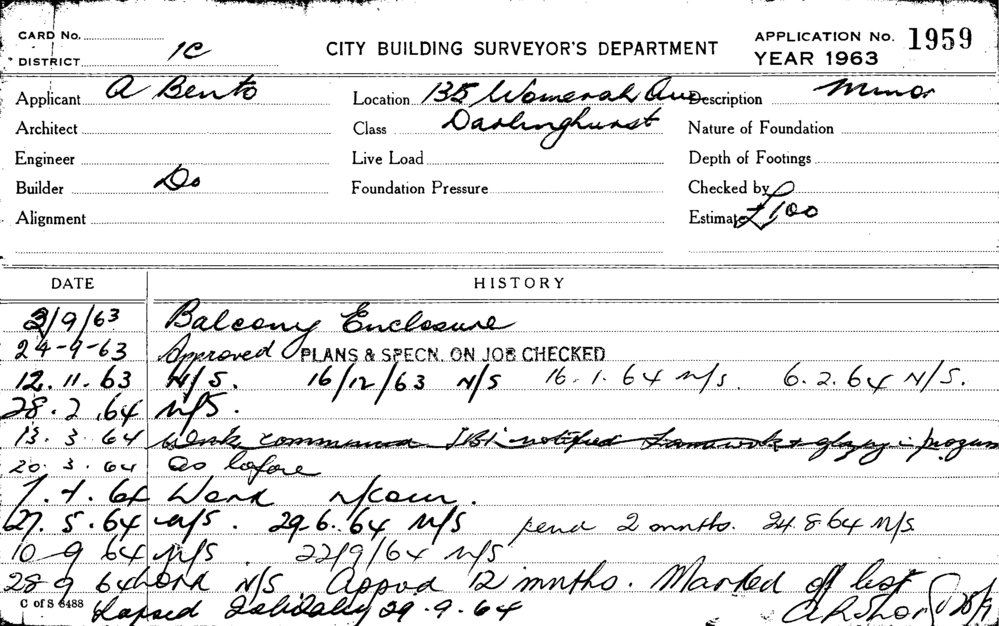 CARD No.
DISTRICT 1C
CITY BUILDING SURVEYOR'S DEPARTMENT
APPLICATION No. 1959
YEAR 1963
Applicant A Bento
Location 135 Womerah Ave
Description Minor
Architect
Class Darlinghurst
Nature of Foundation
Engineer
Live Load
Depth of Footings
Builder Do
Foundation Pressure
Checked by
Alignment
Estimate £100
DATE HISTORY
3/9/63 Balcony Enclosure
24-9-63 Approved PLANS & SPECN. ON JOB CHECKED
12.11.63 N/S. 16/12/63 N/S 16.1.64 N/S. 6.2.64 N/S.
28.2.64 N/S.
13.3.64 Work commenced notified framework & glazing in progress
20.3.64 as before
7.4.64 Work N/com.
27.5.64 N/S. 29.6.64 N/S pend 2 mnths. 24.8.64 N/S
10-9 64 N/S 22/9/64 N/S
28 9 64 Work N/S Appvd 12 mnths. Marked off list
C of S 6488 Lapsed 29.9.64